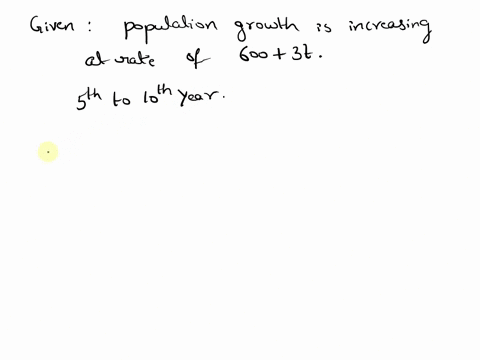 Given : population growth is increasing
at rate of 600 + 3t.
5th to 10th Year.